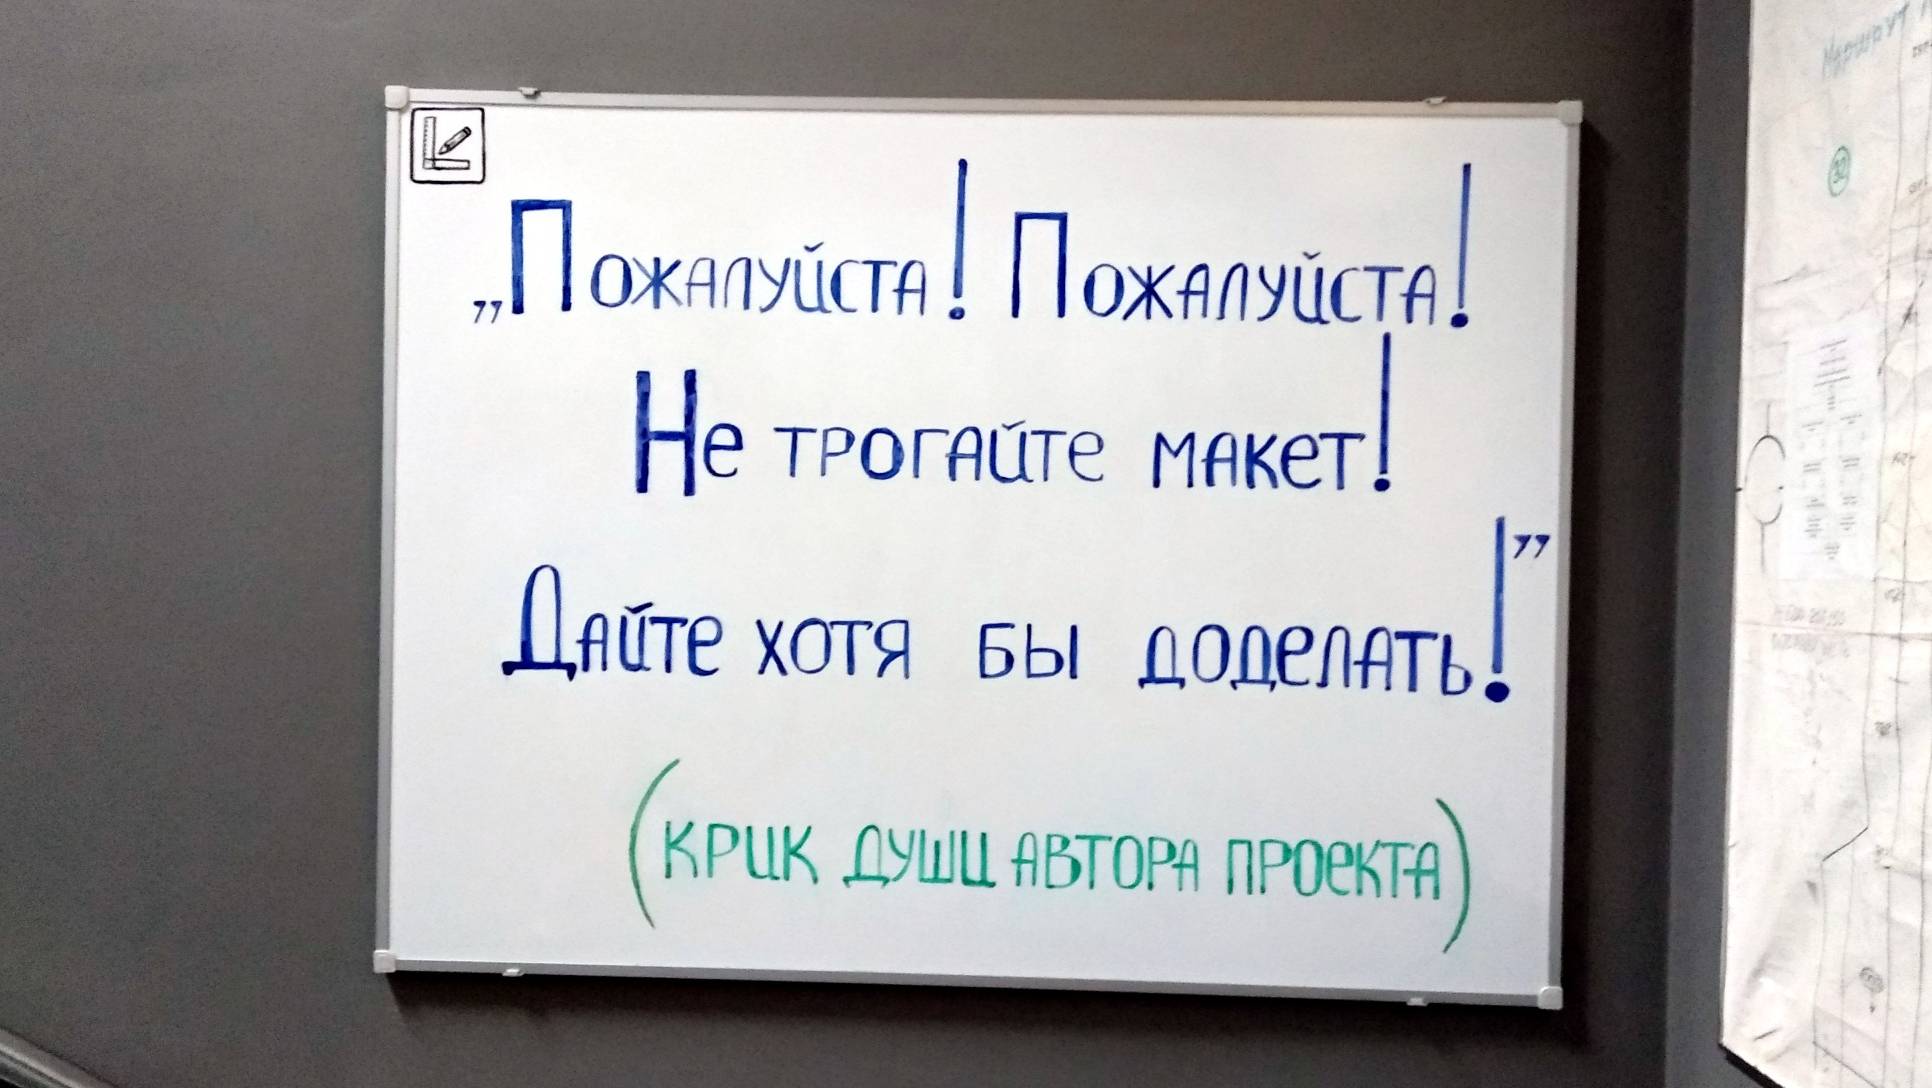 „Пожалуйста! Пожалуйста!
Не трогайте макет!
Дайте хотя бы доделать!”
(крик души автора проекта)
Маршрут
32